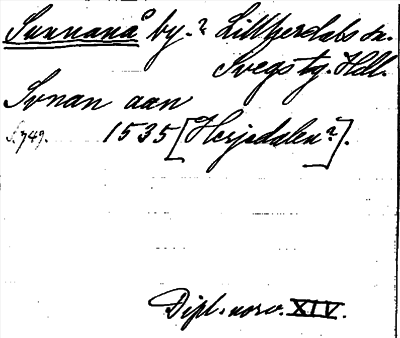 Sunnanå by.? Lillherdals sn.
Svegs tg. Hdl.
Synan aan
S. 749. 1535 [Herjedalen?].
Dipl. norv. XIV.